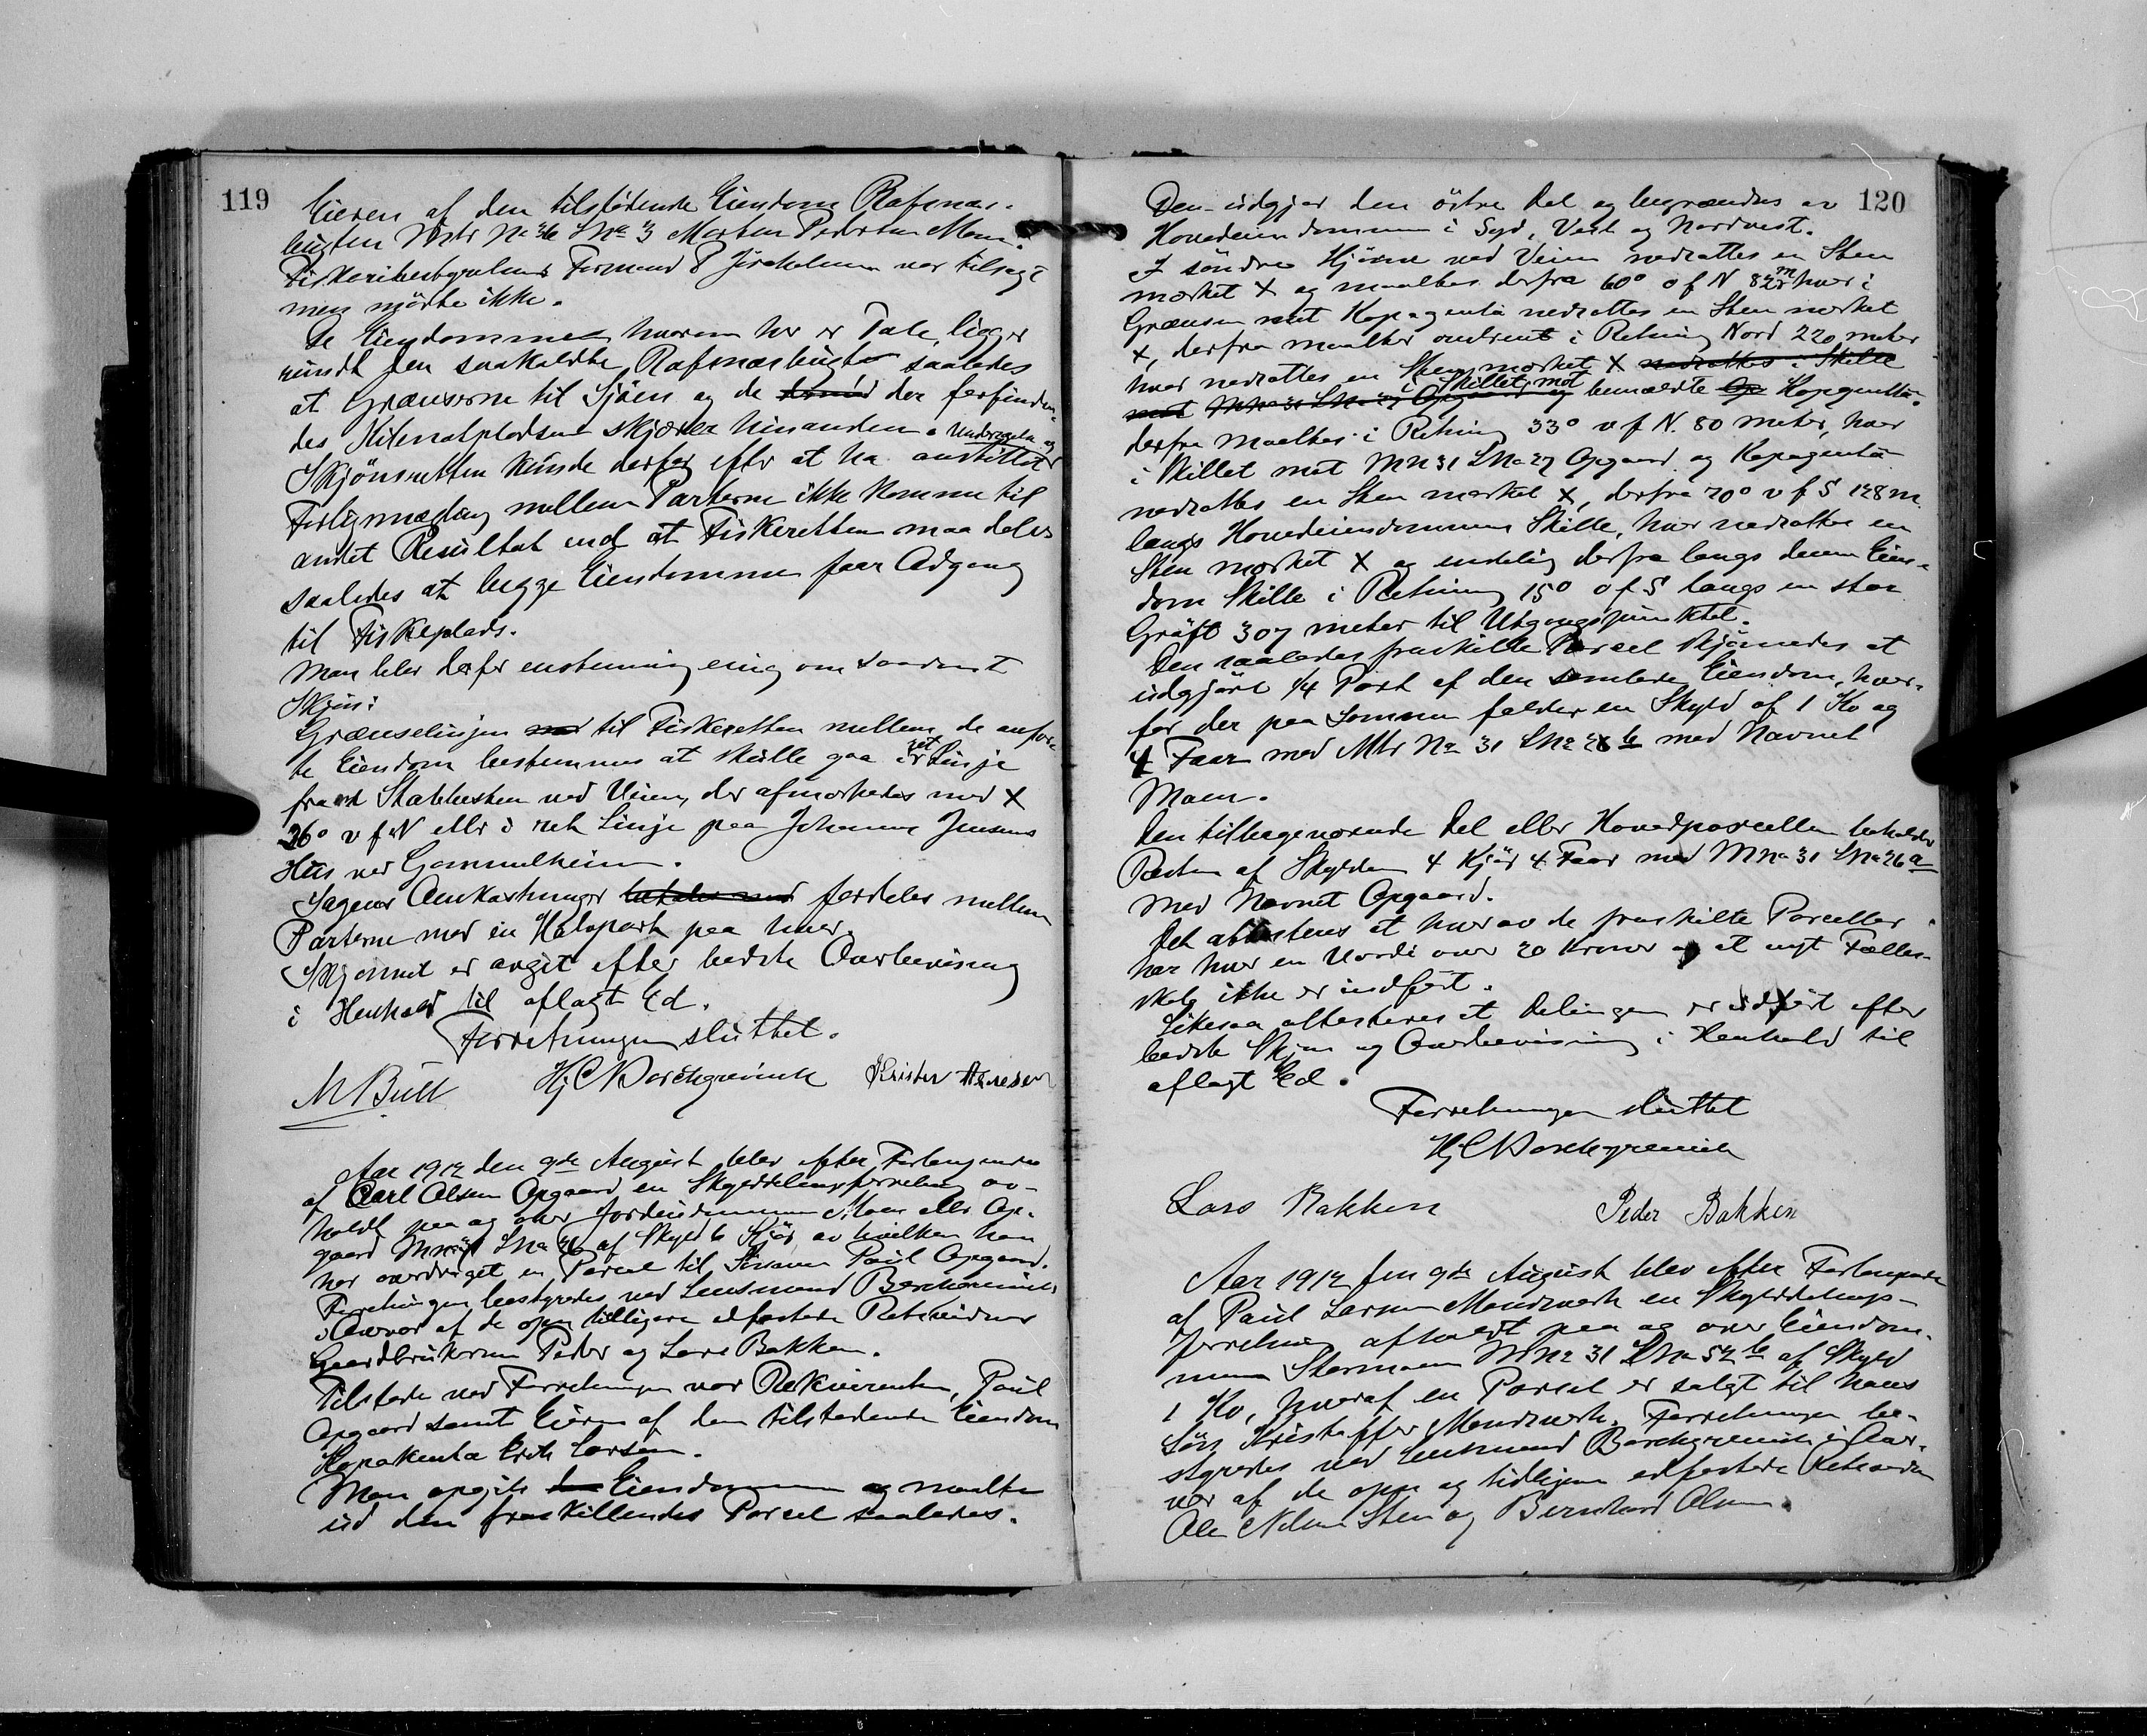 119
Eieren af den tilstødende Eiendom Rafsnæs-
bugten Mtr No 36 LNo 3 Morten Pedersen Moen.
Fiskeribestyrelsens Formand P Jörkelsen var tilsagt
men mødte ikke.
De Eiendommer hvorom her er Tale, ligger
rundt den saakaldte Rafsnæsbugt saaledes
at Grænserne til Sjøen og de der forfinden-
des Kilenotpladsene skjærer hinanden. Undersøgelse og
Skjönsretten kunde derfor efter at ha anstillet
Forligsmægling mellem Parterne ikke komme til
andet Resultat end at Fiskeretten maa deles
saaledes at begge Eiendomme faar Adgang
til Fiskeplads.
Man blev derfor enstemmig enig om saadant
Skjön:
Grænselinjen til Fiskeretten mellem de anfør-
te Eiendom bestemmes at skulle gaa i ret Linje
fra et Stabbesten ved Veien, der afmærkedes med X
26° v f N eller i ret Linje paa Johannes Jensens
Hus ved Gammelheim.
Sagens Omkostninger betales med fordeles mellem
Parterne med en Halvpart paa hver.
Skjønnet er avgit efter bedste Overbevisning
i Henhold til aflagt Ed.
Forretningen sluttet.
M Bull HjCBorchgrevink Krister Hansen
Aar 1912 den 9de August blev efter Forlangende
af Carl Olsen Opgaard en Skylddelingsforretning av-
holdt paa og over Jordeiendommen Moen eller Op-
gaard MNo 31 LNo 26 af Skyld 6 Kjör av hvilken han
har overdraget en Parcel til Sönnen Paul Opgaard.
Forretningen bestyredes ved Lensmand Borchgrevink
i Overvær af de opn tidligere edfæstede Retsvidner
Gaardbrukerne Peder og Lars Bakken.
Tilstede ved Forretningen var Rekvirenten, Paul
Opgaard samt Eieren af den tilstødende Eiendom
Kopakenta Erik Larsen.
Man opgik Eiendommen og maalte
ud den fraskillendes Parcel saaledes.
120
Den udgjør den östre Del og begrændses av
Hovedeiendommen i Syd, Vest og Nordvest.
I söndre Hjörne ved Veien nedsattes en Sten
mærket X og maaltes derfra 60° o f N 82 m hvor i
Grænsen mot Kopagenta nedsattes en Sten mærket
X, derfra maaltes omtrent i Retning Nord 220 meter
hvor nedsattes en Sten mærket X nedsattes i Skille
i Skillet mot
mot MNo 31 LNo 27 Opgaard og bemældte Op Kopagenta.
derfra maaltes i Retning 33° v f N. 80 meter, hvor
i Skillet mot MN 31 LNo 27 Opgaard og Kopagenta
nedsattes en Sten mærket X, derfra 70° v f S 128 m
langs Hovedeiendommens Skille, hvor nedsattes en
Sten mærket X og endelig derfra langs denne Eien-
dom Skille i Retning 15° o f S langs en stor
Gröft 307 meter til Utgangspunktet.
Den saaledes fraskilte Parcel skjönnedes at
udgjöre 1/4 Part af den samlede Eiendom, hvor-
for der paa samme falder en Skyld af 1 Ko og
4 Faar med Mtr No 31 LNo 26 b med Navnet
Moen.
Den tilbageværende Del eller Hovedparcellen beholder
Resten af Skylden 4 Kjör 4 Faar med MNo 31 LNo 26 a
med Navnet Opgaard.
Det attesteres at hver av de fraskilte Parceller
har hver en Værdi over 20 kroner og at nyt Fælles-
skab ikke er indfört.
Likesaa attesteres at Delingen er udført efter
bedste Skjøn og Overbevisning i Henhold til
aflagt Ed.
Forretningen sluttet
HjCBorchgrevink
Lars Bakken Peder Bakken
Aar 1912 den 9de August blev efter Forlangende
af Paul Larsen Mandsverk en Skylddelings-
forretning afholdt paa og over Eiendom-
men Stormoen MNo 31 LNo 52 b af Skyld
1 Ko, hvoraf en Parcel er solgt til hans
Sön Kristoffer Mandsverk. Forretningen be-
styredes ved Lensmand Borchgrevink i Over-
vær af de opn og tidligere edfæstede Retsvidner
Ole Nilsen Sten og Bernhard Olsen.